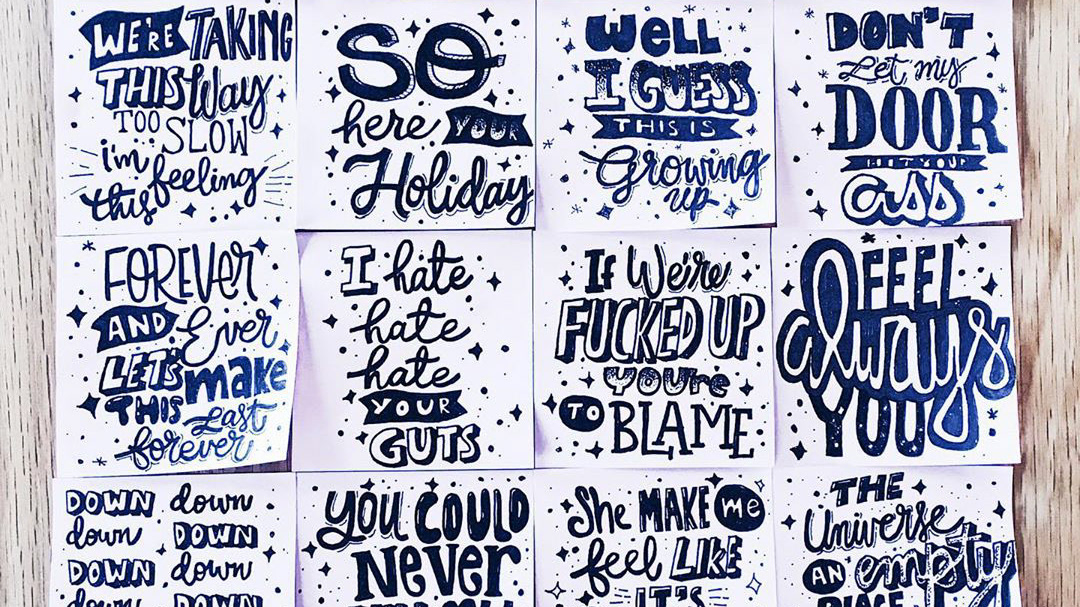 WE'RE TAKING
THIS Way
TOO SLOW
i'm feeling
this
SO
here YOUR
Holiday
Well
I GUESS
THIS IS
Growing
up
DON'T
Let my
DOOR
HIT YOUR
ass
FOREVER
AND Ever
LET'S make
THIS Last
forever
I hate
hate
hate
YOUR
GUTS
If We're
FUCKED UP
YOU'Re
TO BLAME
FEEL
always
YOU
DOWN down
down DOWN
DOWN down
down DOWN
YOU COULD
Never
She MAKE me
feel LIKE
IT'S
THE
Universe
AN empty